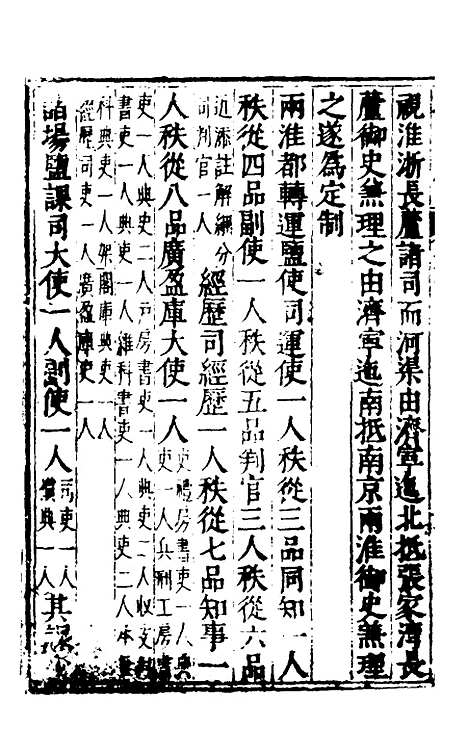 視淮浙長蘆諸司而河渠由濟寧迤北抵張家灣長
蘆御史兼理之由濟寧迤南抵南京兩淮御史兼理
之遂爲定制
兩淮都轉運鹽使司運使一人秩從三品同知一人
秩從四品副使一人秩從五品判官三人秩從六品
近添註解綱分
司判官一人
經歷司經歷一人秩從七品知事一
人秩從八品廣盈庫大使一人
吏禮房書吏一人典
吏一人兵刑工房書
吏一人典史二人戶房書吏一人典吏二人收支
書吏一人典吏一人雜科書吏一人典吏二人本
科典吏一人架閣庫典吏一人
經歷司吏一人廣盈庫吏一人
諸場鹽課司大使一人副使一人
司吏一人
攢典一人
其課